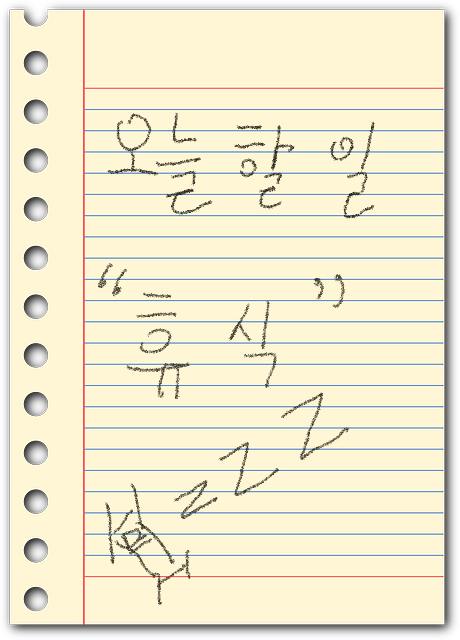 오늘 할 일
“휴식”
zzz